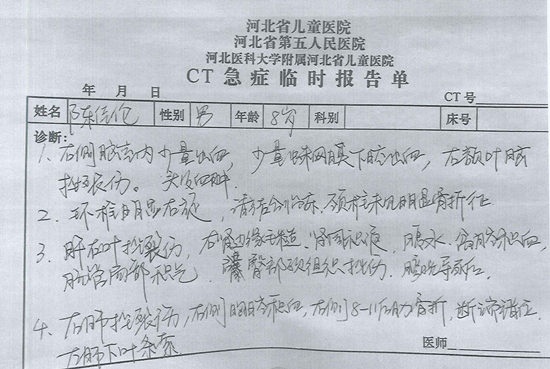 河北省儿童医院
河北省第五人民医院
河北医科大学附属河北省儿童医院
CT急症临时报告单
年 月 日 CT号
姓名 陈佳伦 性别 男 年龄 8岁 科别 床号
诊断:
1、右侧脑室内少量出血,少量蛛网膜下腔出血,右额叶脑
挫裂伤。头皮血肿.
2、环枢明显右旋,请结合临床、颈椎未见明显骨折征
3、肝右叶挫裂伤,右肾边缘毛糙、肾周积液、腹水、盆腔积血,
肠管局部积气、臀部软组织挫伤、
4、右肺挫裂伤,右侧胸腔积血,右侧8-11肋骨折,断端错位
右肺下叶
医师